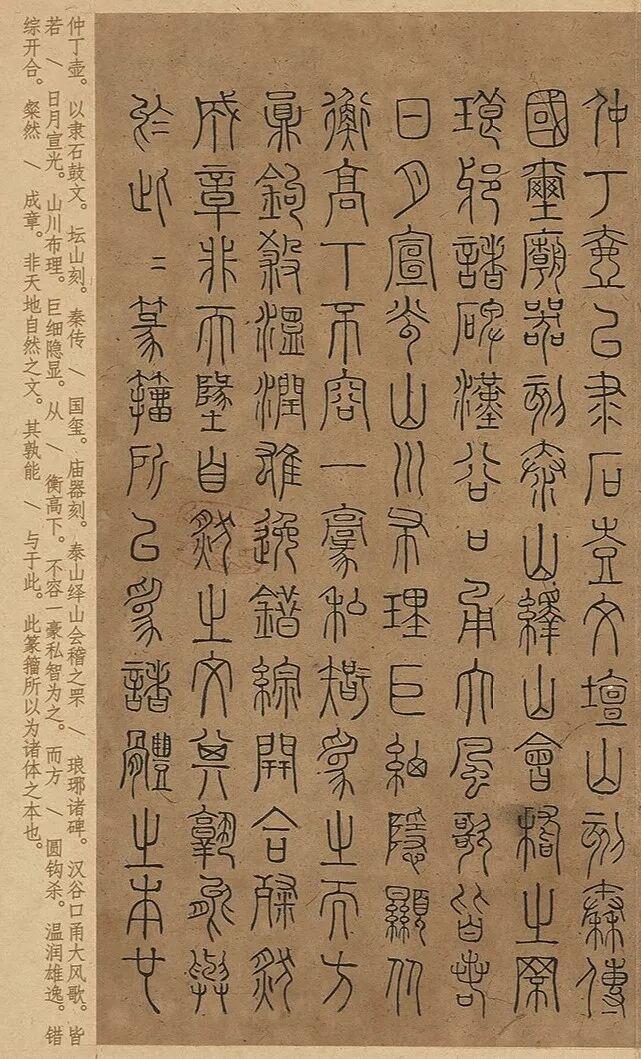 仲丁壺㠯隶石鼓文壇山刻秦傳
國璽廟器刻泰山繹山會稽之罘
琅邪諸碑漢谷口甬大風歌皆若
日月宣光山川布理巨細隱顯从
衡高下不容一豪私智為之而方
圓鉤殺溫潤雄逸錯綜開合粲然
成章非天地自然之文其孰能與
於此二篆籀所㠯為諸體之本也
仲丁壶。以隶石鼓文。坛山刻。秦传 / 国玺。庙器刻。泰山绎山会稽之罘 / 琅琊诸碑。汉谷口甬大风歌。皆
若 / 日月宣光。山川布理。巨细隐显。从 / 衡高下。不容一豪私智为之。而方 / 圆钩杀。温润雄逸。错
综开合。粲然 / 成章。非天地自然之文。其孰能 / 与于此。此篆籀所以为诸体之本也。